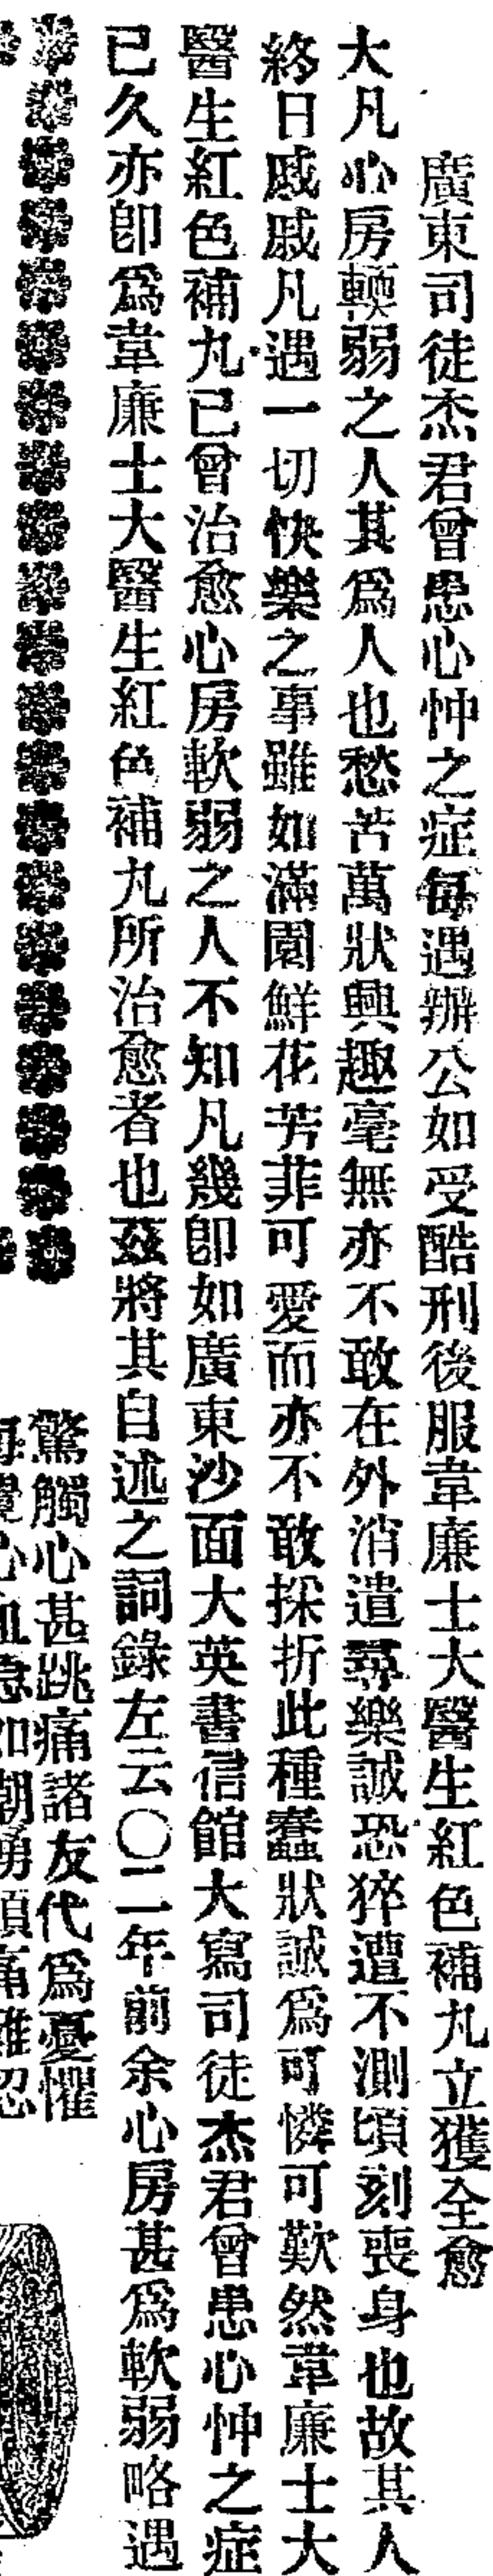 廣東司徒杰君曾患心忡之症每遇辦公如受酷刑後服韋廉士大醫生紅色補丸立獲全愈
大凡心房輭弱之人其爲人也愁苦萬狀興趣毫無亦不敢在外消遣尋樂誠恐猝遭不測頃刻喪身也故其人
終日戚戚凡遇一切快樂之事雖如滿園鮮花芳菲可愛而亦不敢採折此種蠢狀誠爲可憐可歎然韋廉士大
醫生紅色補丸已曾治愈心房軟弱之人不知凡幾卽如廣東沙面大英書信館大寫司徒杰君曾患心忡之症
已久亦卽爲韋廉士大醫生紅色補丸所治愈者也茲將其自述之詞錄左云〇二年前余心房甚爲軟弱略遇
驚觸心甚跳痛諸友代爲憂懼
每覺心血急如潮湧頭痛難忍